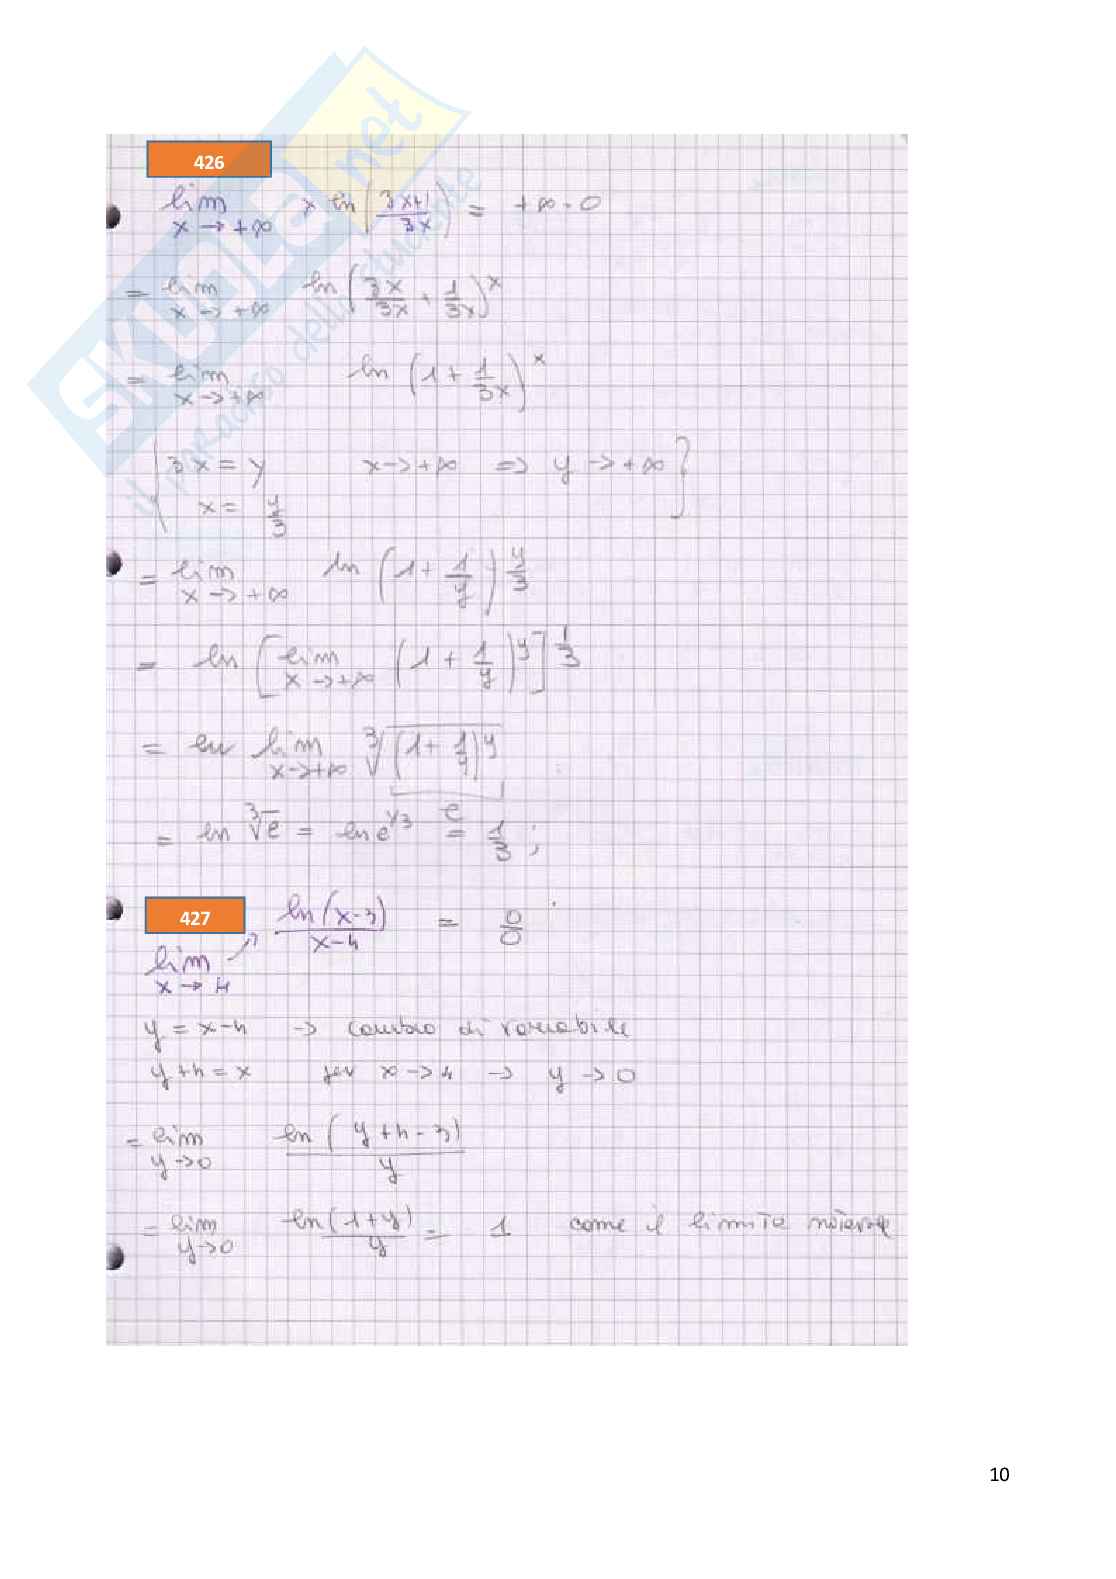 SKUOLA.net
il paradiso dello studente
426
lim x→+∞ x ln(3x+1/3x) = +∞·0
= lim x→+∞ ln(3x/3x + 1/3x)^x
= lim x→+∞ ln(1 + 1/3x)^x
{3x = y x→+∞ => y→+∞}
x = y/3
= lim x→+∞ ln(1 + 1/y)^y/3
= ln[lim x→+∞ (1 + 1/y)^y]^1/3
= ln lim x→+∞ ∛(1 + 1/y)^y
e
= ln ∛e = ln e^1/3 = 1/3 ;
427
lim x→4 ln(x-3)/x-4 = 0/0
y = x-4 → cambio di variabile
y+4 = x per x→4 → y→0
= lim y→0 ln(y+4-3)/y
= lim y→0 ln(1+y)/y = 1 come il limite notevole
10